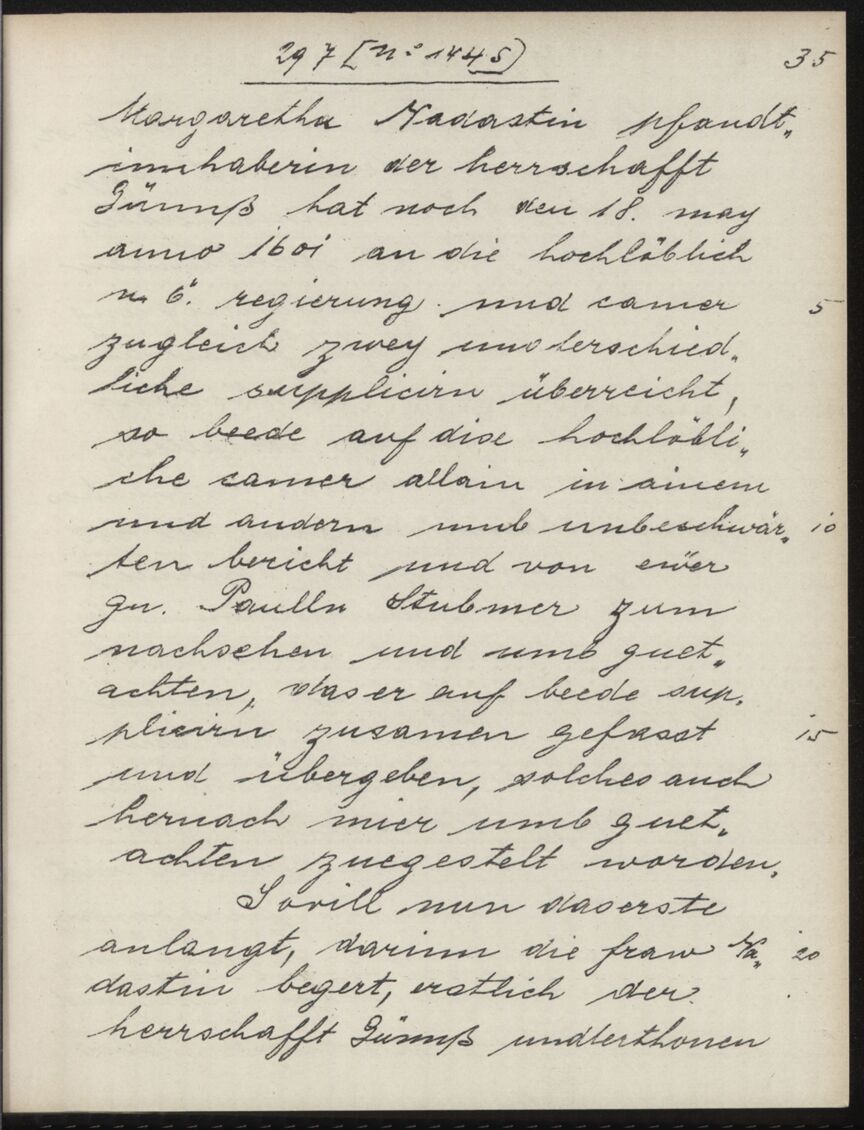 297 [Nº 1445) 35
Margaretha Nadastin pfandt„
innhaberin der herrschafft
Günnß hat noch den 18. may
anno 1601 an die hochlöblich
n. ö. regierung und camer 5
zugleich zwey underschied„
liche supplicirn überreicht,
so beede auf dise hochlöbli„
che camer allain in ainem
und andern umb unbeschwär„ 10
ten bericht und von ewer
gn. Paulln Stubmer zum
nachsehen und umb guet„
achten, das er auf beede sup„
plicirn zusamen gefasst 15
und übergeben, solches auch
hernach mier umb guet„
achten zuegestelt worden.
Sovill nun das erste
anlangt, darinn die fraw Na„ 20
dastin begert, erstlich der
herrschafft Günnß undterthonen